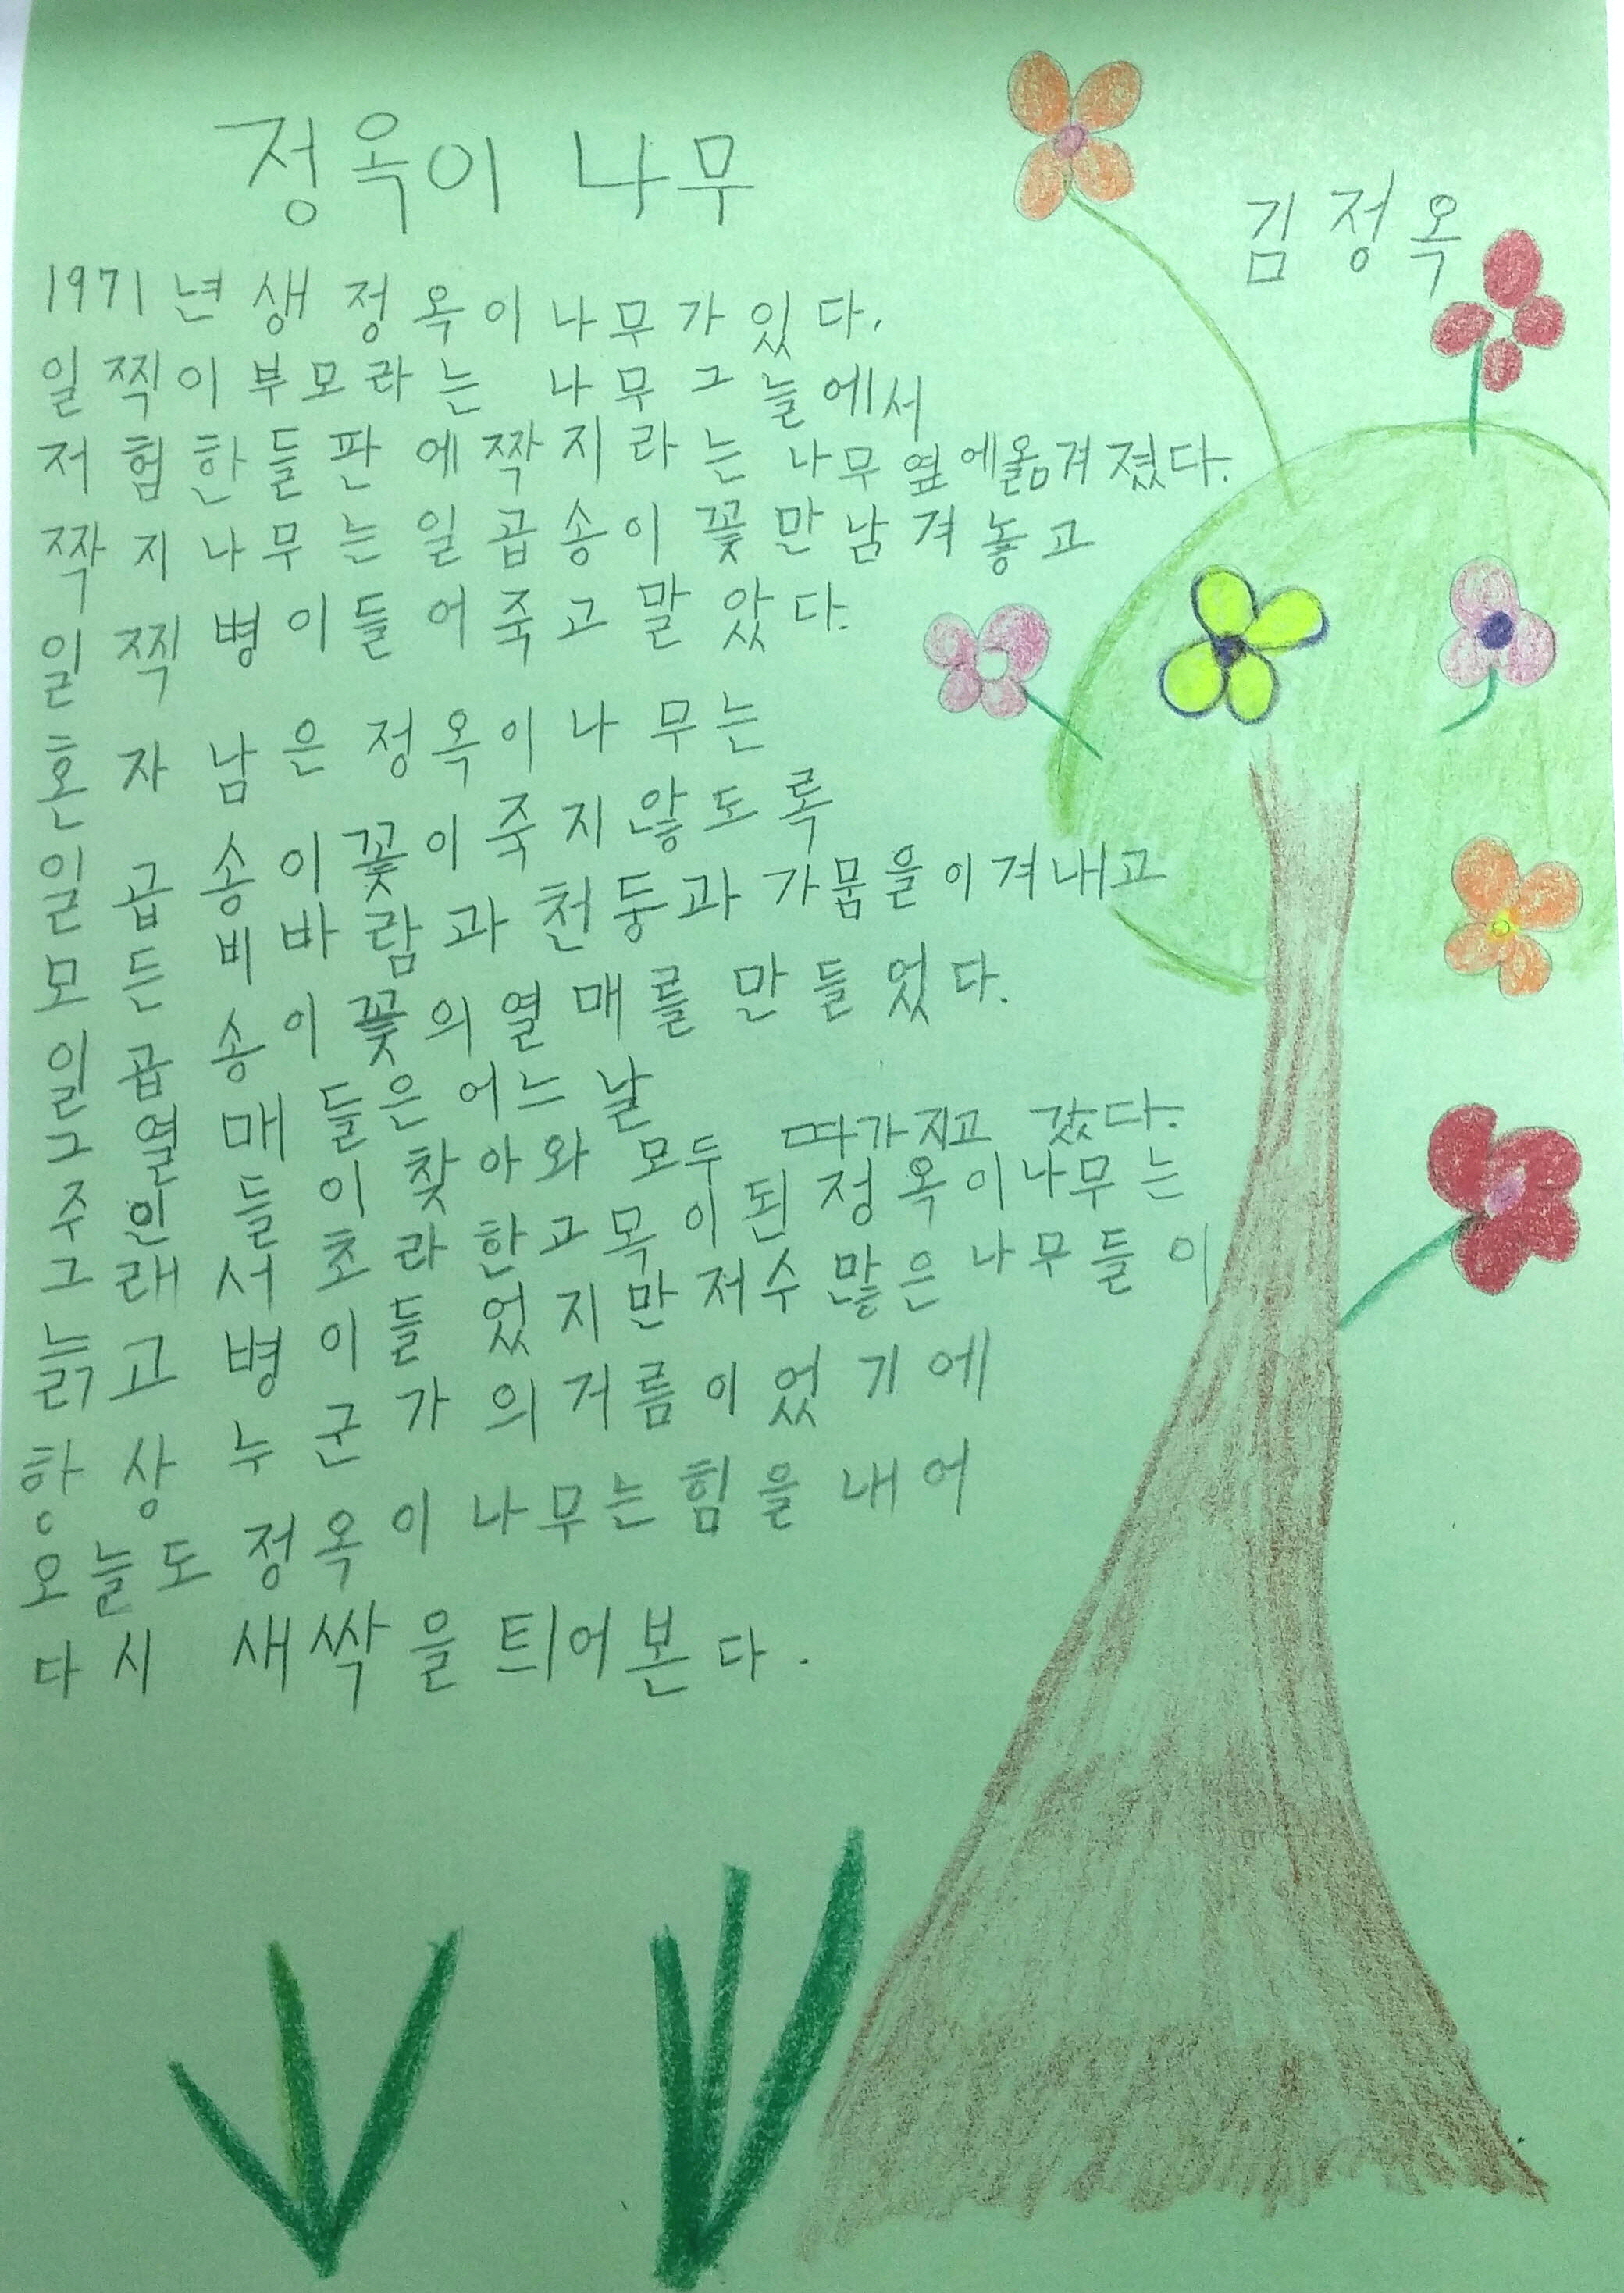 정옥이 나무
김정옥
1971년생 정옥이나무가 있다.
일찍이 부모라는 나무 그늘에서
저 험한 들판에 짝지라는 나무 옆에 옮겨졌다.
짝지나무는 일곱송이 꽃만 남겨놓고
일찍 병이 들어 죽고 말았다.
혼자 남은 정옥이나무는
일곱송이 꽃이 죽지 않도록
모든 비바람과 천둥과 가뭄을 이겨내고
일곱송이 꽃의 열매를 만들었다.
그 열매들은 어느 날
주인들이 찾아와 모두 따가지고 갔다.
그래서 초라한 고목이 된 정옥이나무는
늙고 병이 들었지만 저 수많은 나무들이
항상 누군가의 거름이었기에
오늘도 정옥이나무는 힘을 내어
다시 새싹을 틔어본다.